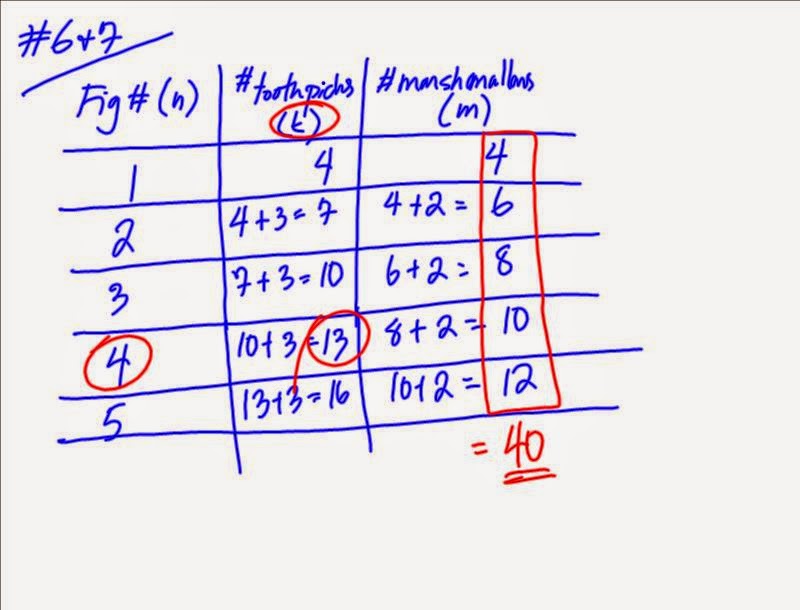 #6+7
Fig # (n) # toothpicks (t) # marshmallows (m)
1 4 4
2 4+3=7 4+2=6
3 7+3=10 6+2=8
4 10+3=13 8+2=10
5 13+3=16 10+2=12
=40